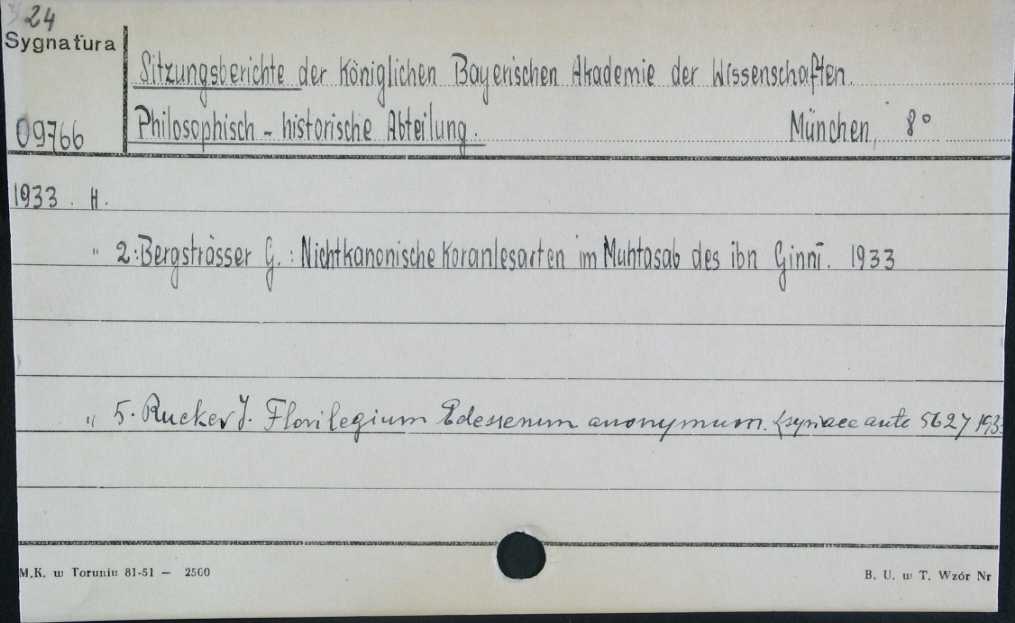 24
Sygnatura
Sitzungsberichte der Königlichen Bayerischen Akademie der Wissenschaften.
09766
Philosophisch - historische Abteilung. München, 8°
1933 . H.
" 2: Bergsträsser G. : Nichtkanonische Koranlesarten im Muhtasab des ibn Ginnī. 1933
" 5. Rucker J. Florilegium Edessenum anonymum. (syriace ante 562 7 193
M.K. w Toruniu 81-51 — 2500
B. U. w T. Wzór Nr